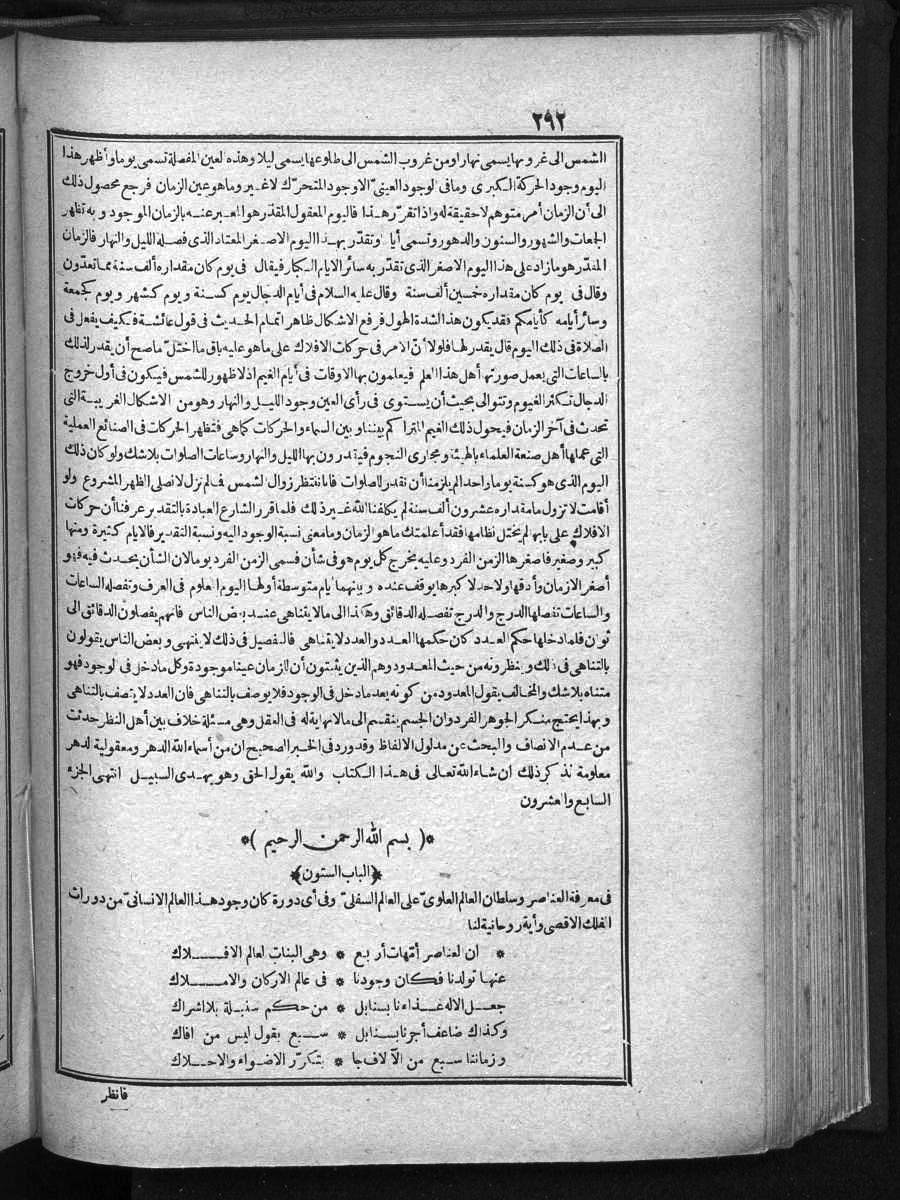 ٢٩٢
الشمس الى غروبها يسمى نهارا ومن غروب الشمس الى طلوعها يسمى ليلا وهذه العين المفصلة تسمى يوما وأظهر هذا
اليوم وجود الحركة الكبرى وما فى الوجود العينىّ الا وجود المتحرّك لا غير وما هو عين الزمان فرجع محصول ذلك
الى أن الزمان أمر متوهم لا حقيقة له واذا تقرّر هذا فاليوم المعقول المقدّر هو المعبر عنه بالزمان الموجود وبه تظهر
الجمعات والشهور والسنون والدهور وتسمى أياما وتقدّر بهذا اليوم الاصغر المعتاد الذى فصله الليل والنهار فالزمان
المقدّر هو ما زاد على هذا اليوم الاصغر الذى تقدّر به سائر الايام الكبار فيقال فى يوم كان مقداره ألف سنة مما تعدّون
وقال فى يوم كان مقداره خمسين ألف سنة وقال عليه السلام فى أيام الدجال يوم كسنة ويوم كشهر ويوم كجمعة
وسائر أيامه كأيامكم فقد يكون هذا لشدة الهول فرفع الاشكال ظاهر اتمام الحديث فى قول عائشة فكيف يفعل فى
الصلاة فى ذلك اليوم قال يقدر لها فلولا أنّ الامر فى حركات الافلاك على ما هو عليه باق ما اختلّ ما صح أن يقدر لذلك
بالساعات التى يعمل صورتها أهل هذا العلم فيعلمون بها الاوقات فى أيام الغيم اذ لا ظهور للشمس فيكون فى أول خروج
الدجال تكثر الغيوم وتتوالى بحيث أن يستوى فى رأى العين وجود الليل والنهار وهو من الاشكال الغريبة التى
تحدث فى آخر الزمان فيحول ذلك الغيم المتراكم بيننا وبين السماء والحركات كما هى فتظهر الحركات فى الصنائع العملية
التى عملها أهل صنعة العلماء بالهيئة ومجارى النجوم فيقدرون بها الليل والنهار وساعات الصلوات بلا شك ولو كان ذلك
اليوم الذى هو كسنة يوما واحدا لم يلزمنا أن نقدر للصلوات فانا ننتظر زوال الشمس فما لم تزل لا نصلى الظهر المشروع ولو
أقامت لا تزول ما مقداره عشرون ألف سنة لم يكلفنا الله غير ذلك فلما قرر الشارع العبادة بالتقدير عرفنا أن حركات
الافلاك على بابها لم يختل نظامها فقد أعلمتك ما هو الزمان وما معنى نسبة الوجود اليه ونسبة التقدير فالايام كثيرة ومنها
كبير وصغير فاصغرها الزمن الفرد وعليه يخرج كل يوم هو فى شأن فسمى الزمن الفرد يوما لان الشأن يحدث فيه فهو
أصغر الازمان وأدقها ولا حد لاكبرها يوقف عنده وبينهما أيام متوسطة أولها اليوم المعلوم فى العرف وتفصله الساعات
والساعات تفصلها الدرج والدرج تفصله الدقائق وهكذا الى ما لا يتناهى عند بعض الناس فانهم يفصلون الدقائق الى
ثوان فلما دخلها حكم العدد كان حكمها العدد والعدد لا يتناهى فالتفصيل فى ذلك لا ينتهى وبعض الناس يقولون
بالتناهى فى ذلك وينظرونه من حيث المعدود وهم الذين يثبتون أن للزمان عينا موجودة وكل ما دخل فى الوجود فهو
متناه بلا شك والمخالف يقول المعدود من كونه يعد ما دخل فى الوجود فلا يوصف بالتناهى فان العدد لا يتصف بالتناهى
وبهذا يحتج منكر الجوهر الفرد وان الجسم ينقسم الى ما لا نهاية له فى العقل وهى مسئلة خلاف بين أهل النظر حدثت
من عدم الانصاف والبحث عن مدلول الالفاظ وقد ورد فى الخبر الصحيح ان من أسماء الله الدهر ومعقولية الدهر
معلومة نذكر ذلك ان شاء الله تعالى فى هذا الكتاب والله يقول الحق وهو يهدى السبيل انتهى الجزء
السابع والعشرون
*( بسم الله الرحمن الرحيم )*
﴿الباب الستون﴾
فى معرفة العناصر وسلطان العالم العلوىّ على العالم السفلىّ وفى أى دورة كان وجود هذا العالم الانسانىّ من دورات
الفلك الاقصى وأية روحانية لنا
* ان العناصر أمّهات أربع * وهى البنات لعالم الافلاك
عنها تولدنا فكان وجودنا * فى عالم الاركان والاملاك
جعل الاله غذاءنا بسنابل * من حكم سنبلة بلا اشراك
وكذاك ضاعف أجرنا بسنابل * سبع بقول ليس من افاك
وزماننا سبع من الآلاف جا * بتكرّر الاضواء والاحلاك
فانظر